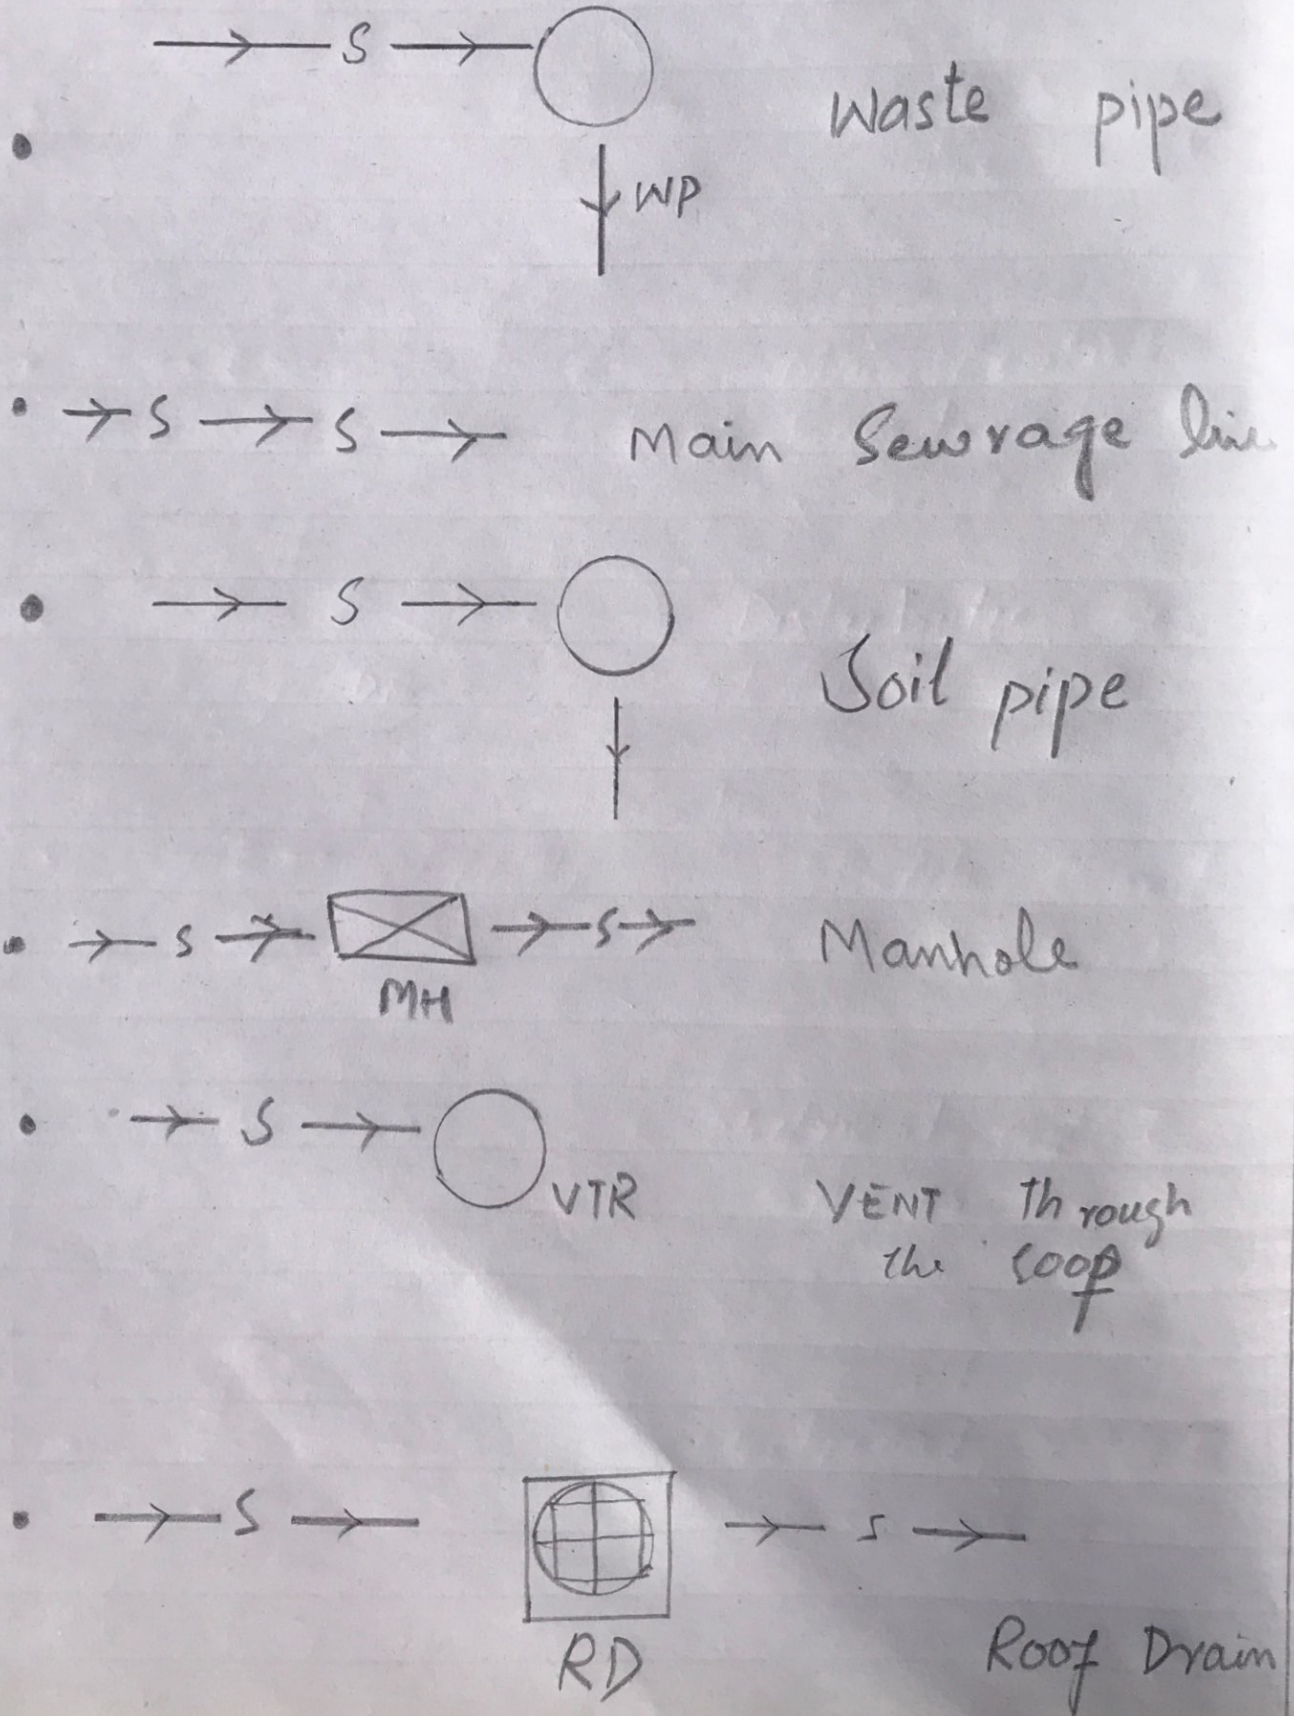 S
Waste pipe
WP
S S Main Sewrage line
S
Soil pipe
S S Manhole
MH
S
VTR VENT through
the roof
S S
RD Roof Drain